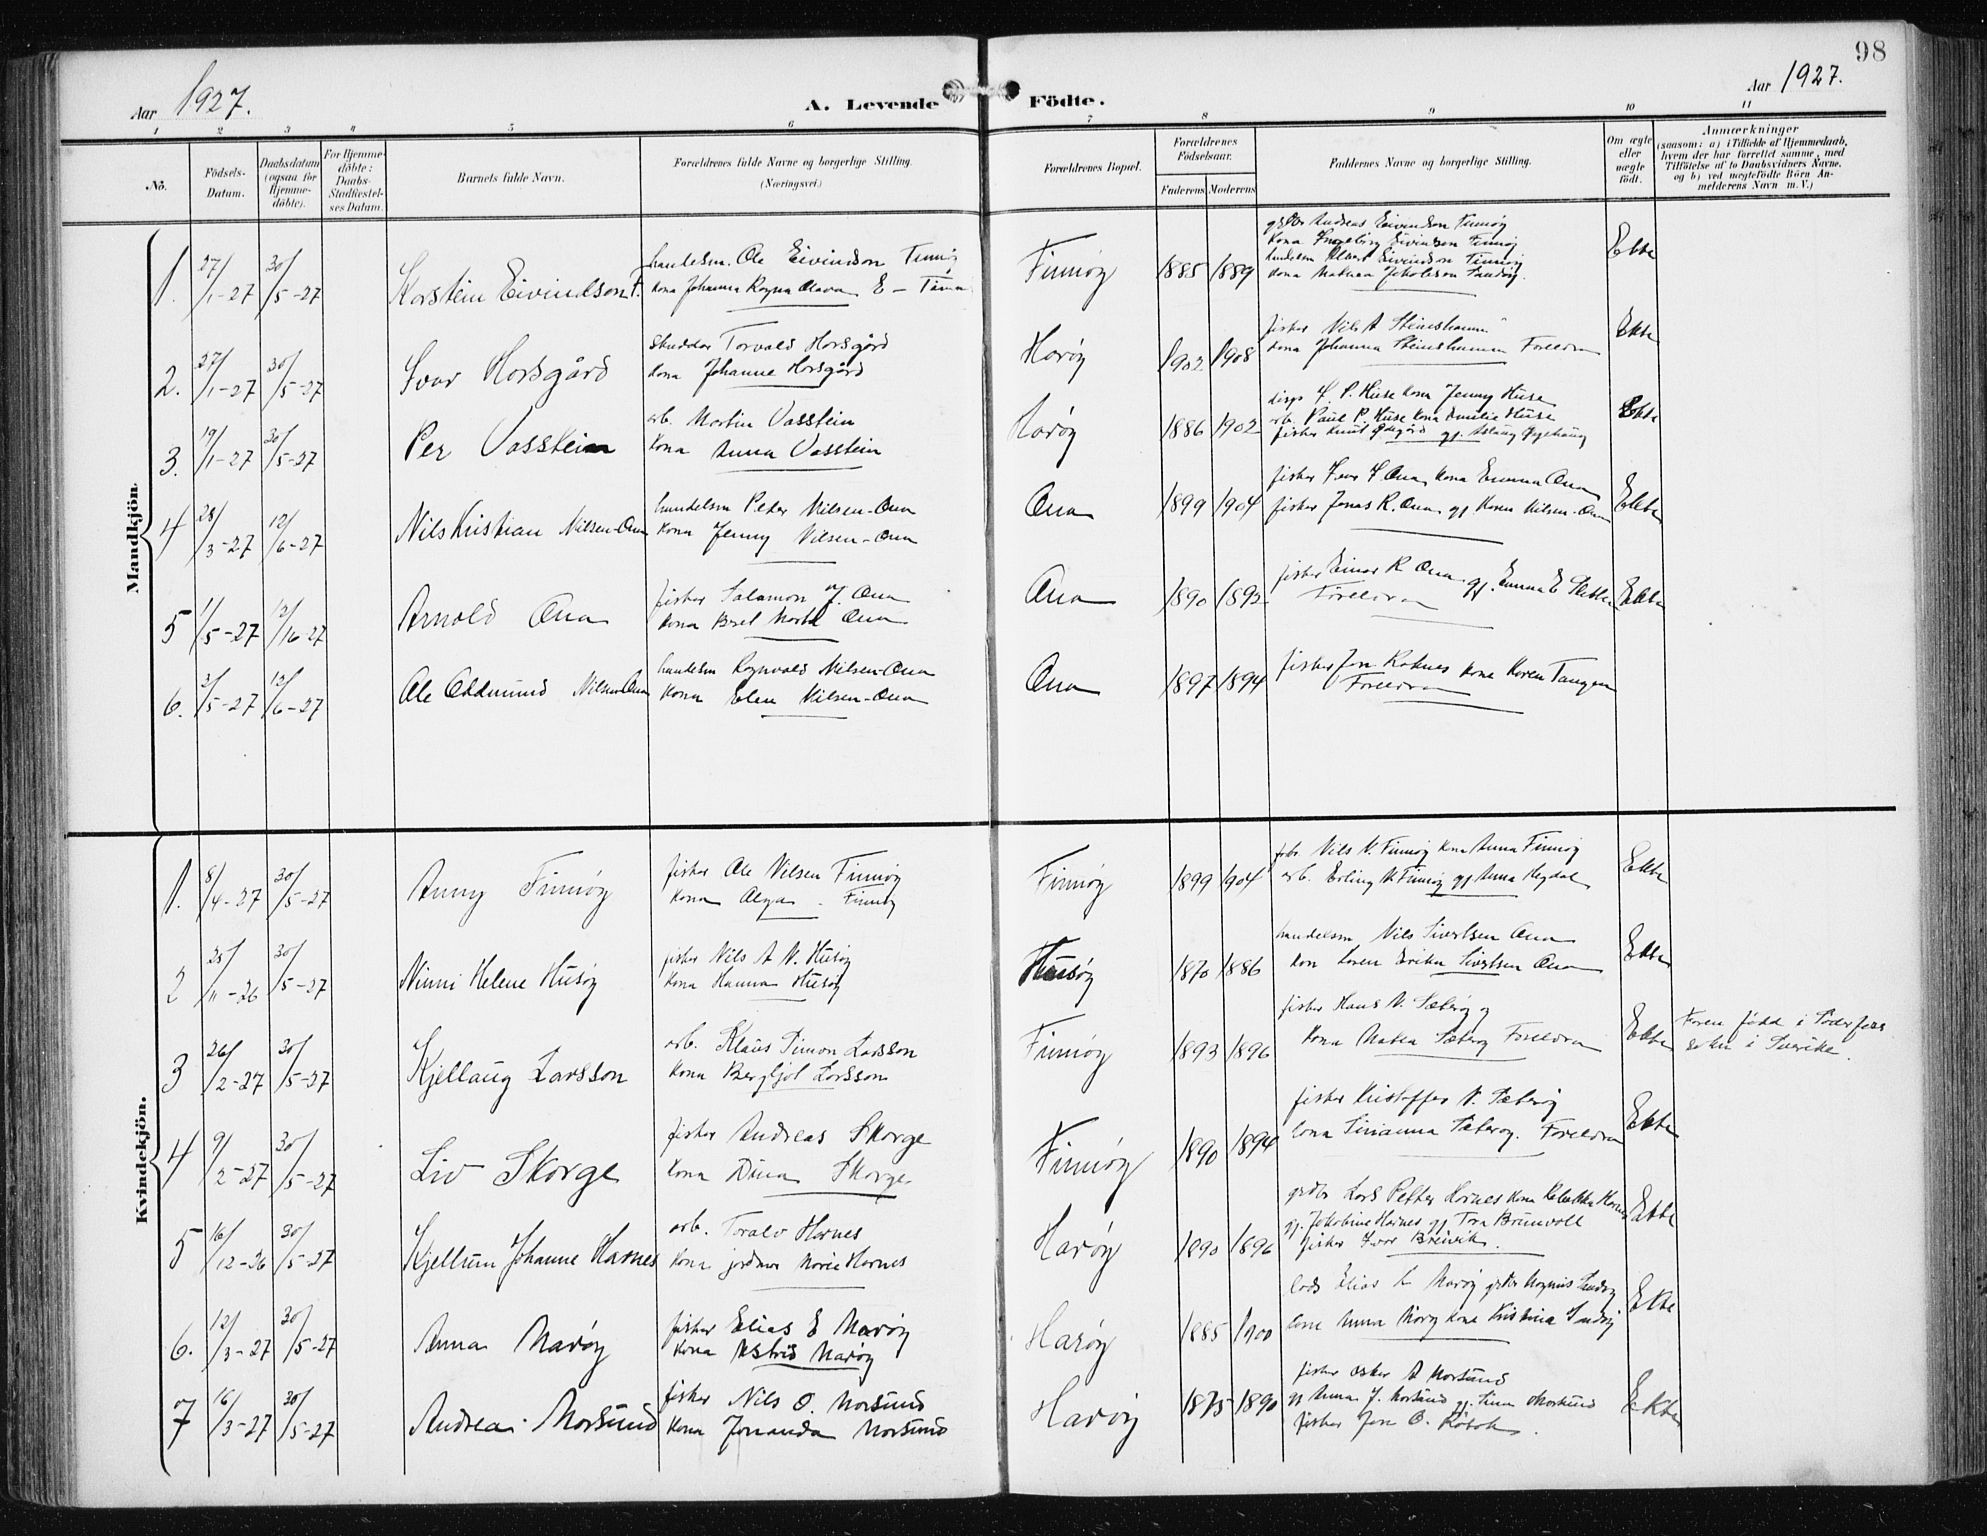 98
Aar 1927.
A. Levende Födte.
Aar 1927.
1 2 3 4 5 6 7 8 9 10 11
No.
Födsels-Datum.
Daabsdatum (ogsaa for Hjemme-döbte).
For Hjemme-döbte: Daabs-Stadfæstel-ses Datum.
Barnets fulde Navn.
Forældrenes fulde Navne og borgerlige Stilling.
(Næringsvei.)
Forældrenes Bopæl.
Forældrenes Födselsaar.
Faderens Moderens
Faddernes Navne og borgerlige Stilling.
Om ægte eller uægte födt.
Anmærkninger
(saasom: a) i Tilfælde af Hjemmedaab,
hvem der har forrettet samme, med
Tilföielse af to Daabsvidners Navne,
og b) ved uægtefödte Börn An-
melderens Navn m. V.)
Mandkjön.
1. 27/1-27 30/5-27 Korstein Eivindson F.
handelsm. Ole Eivindson Finnøy
kona Johanna Ragna Olava E -
Finnøy 1885 1889
Andreas Eivindson Finnøy
kona Ingeborg Eivindson Finnøy
handelsm Albert Eivindson Finnøy
kona Jakobson Sandøy.
Ekte
2. 27/1-27 30/5-27 Ivar Horsgård
Torvald Horsgård
kona Johanne Horsgård
Harøy 1902 1908
fisker Nils A Steinshamn
kona Johanna Steinshamn Foreldra
Ekte
3. 19/1-27 30/5-27 Per Vasstein
arb. Martin Vasstein
kona Anna Vasstein
Harøy 1886 1902
P. Huse kona Jenny Huse
arb. Paul P. Huse kona Emilie Huse
fisker Knut Ødegård gj. Aslaug
Ekte
4 28/3-27 12/6-27 Nils Kristian Nilsen-Ona
handelsm Peder Nilsen-Ona
kona Jenny Nilsen-Ona
Ona 1899 1904
fisker Ivar I Ona, kona Emma Ona
fisker Jonas R. Ona gj. Karen Nilsen-Ona
Ekte
5 1/5-27 12/16-27 Arnold Ona
fisker Salamon J. Ona
kona Beret Marta Ona
Ona 1890 1892
fisker Einar R Ona gj. Emma E
Foreldra
Ekte
6. 3/5-27 12/6-27 Ole Oddmund Nilsen-Ona
handelsm Ragnvald Nilsen-Ona
kona Elen Nilsen-Ona
Ona 1897 1894
fisker Jon Raknes kona Karen Tangen
Foreldra
Kvindekjön.
1. 8/4-27 30/5-27 Anny Finnøy
fisker Ole Nilsen Finnøy
kona Olga Finnøy
Finnøy 1899 1904
Nils N. Finnøy kona Anna Finnøy
arb. Erling N. Finnøy gj Anna Hegdal
Ekte
2 25/11-26 30/5-27 Ninni Helene Husøy
fisker Nils A N. Husøy
kona Hanna Husøy
Husøy 1870 1886
handelsm Nils Sivertsen Ona
kon Erika Sivertsen Ona
Ekte
3 26/2-27 30/5-27 Kjellaug Larsson
arb. Klaus Simon Larsson
kona Bergljot Larsson
Finnøy 1893 1896
fisker Hans N. Sæterøy og
kona Matea Sæterøy Foreldra
Ekte
Faren fødd i Söderfors
sokn i Sverike.
4 9/2-27 30/5-27 Liv Skorge
fisker Andreas Skorge
kona Dina Skorge
Finnøy 1890 1894
fisker Kristoffer N. Sæterøy
kona Sirianna Sæterøy. Foreldra
Ekte
5 16/12-26 30/5-27 Kjellrun Johanne Harnes
arb. Toralv Harnes
kona Jordmor Marie Harnes
Harøy 1890 1896
Lars Petter Harnes kona Rebekka Harnes
gj. Jakobine Harnes gj Tora Brunvoll
fisker Ivar Breivik.
Ekte
6. 12/3-27 30/5-27 Anna Marøy
fisker Elias E Marøy
kona Astrid Marøy
Harøy 1885 1900
Elias Marøy Magnus Sandøy
kona Anna Marøy kona Kristina Sandøy
Ekte
7 16/3-27 30/5-27 Andrea Morsund
fisker Nils O. Morsund
kona Jonanda Morsund
Harøy 1875 1890
fisker Oskar A Morsund
gj Anna J. Morsund gj. Morsund
fisker Jon O. Røsok.
Ekte